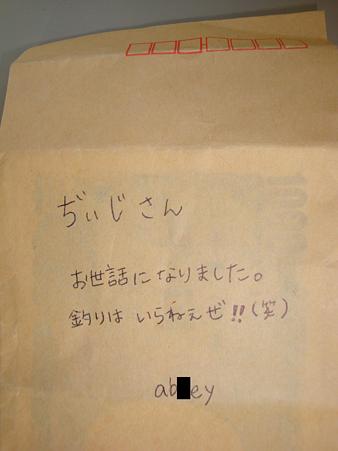 ぢぃじさん
お世話になりました。
釣りは いらねえぜ!!(笑)